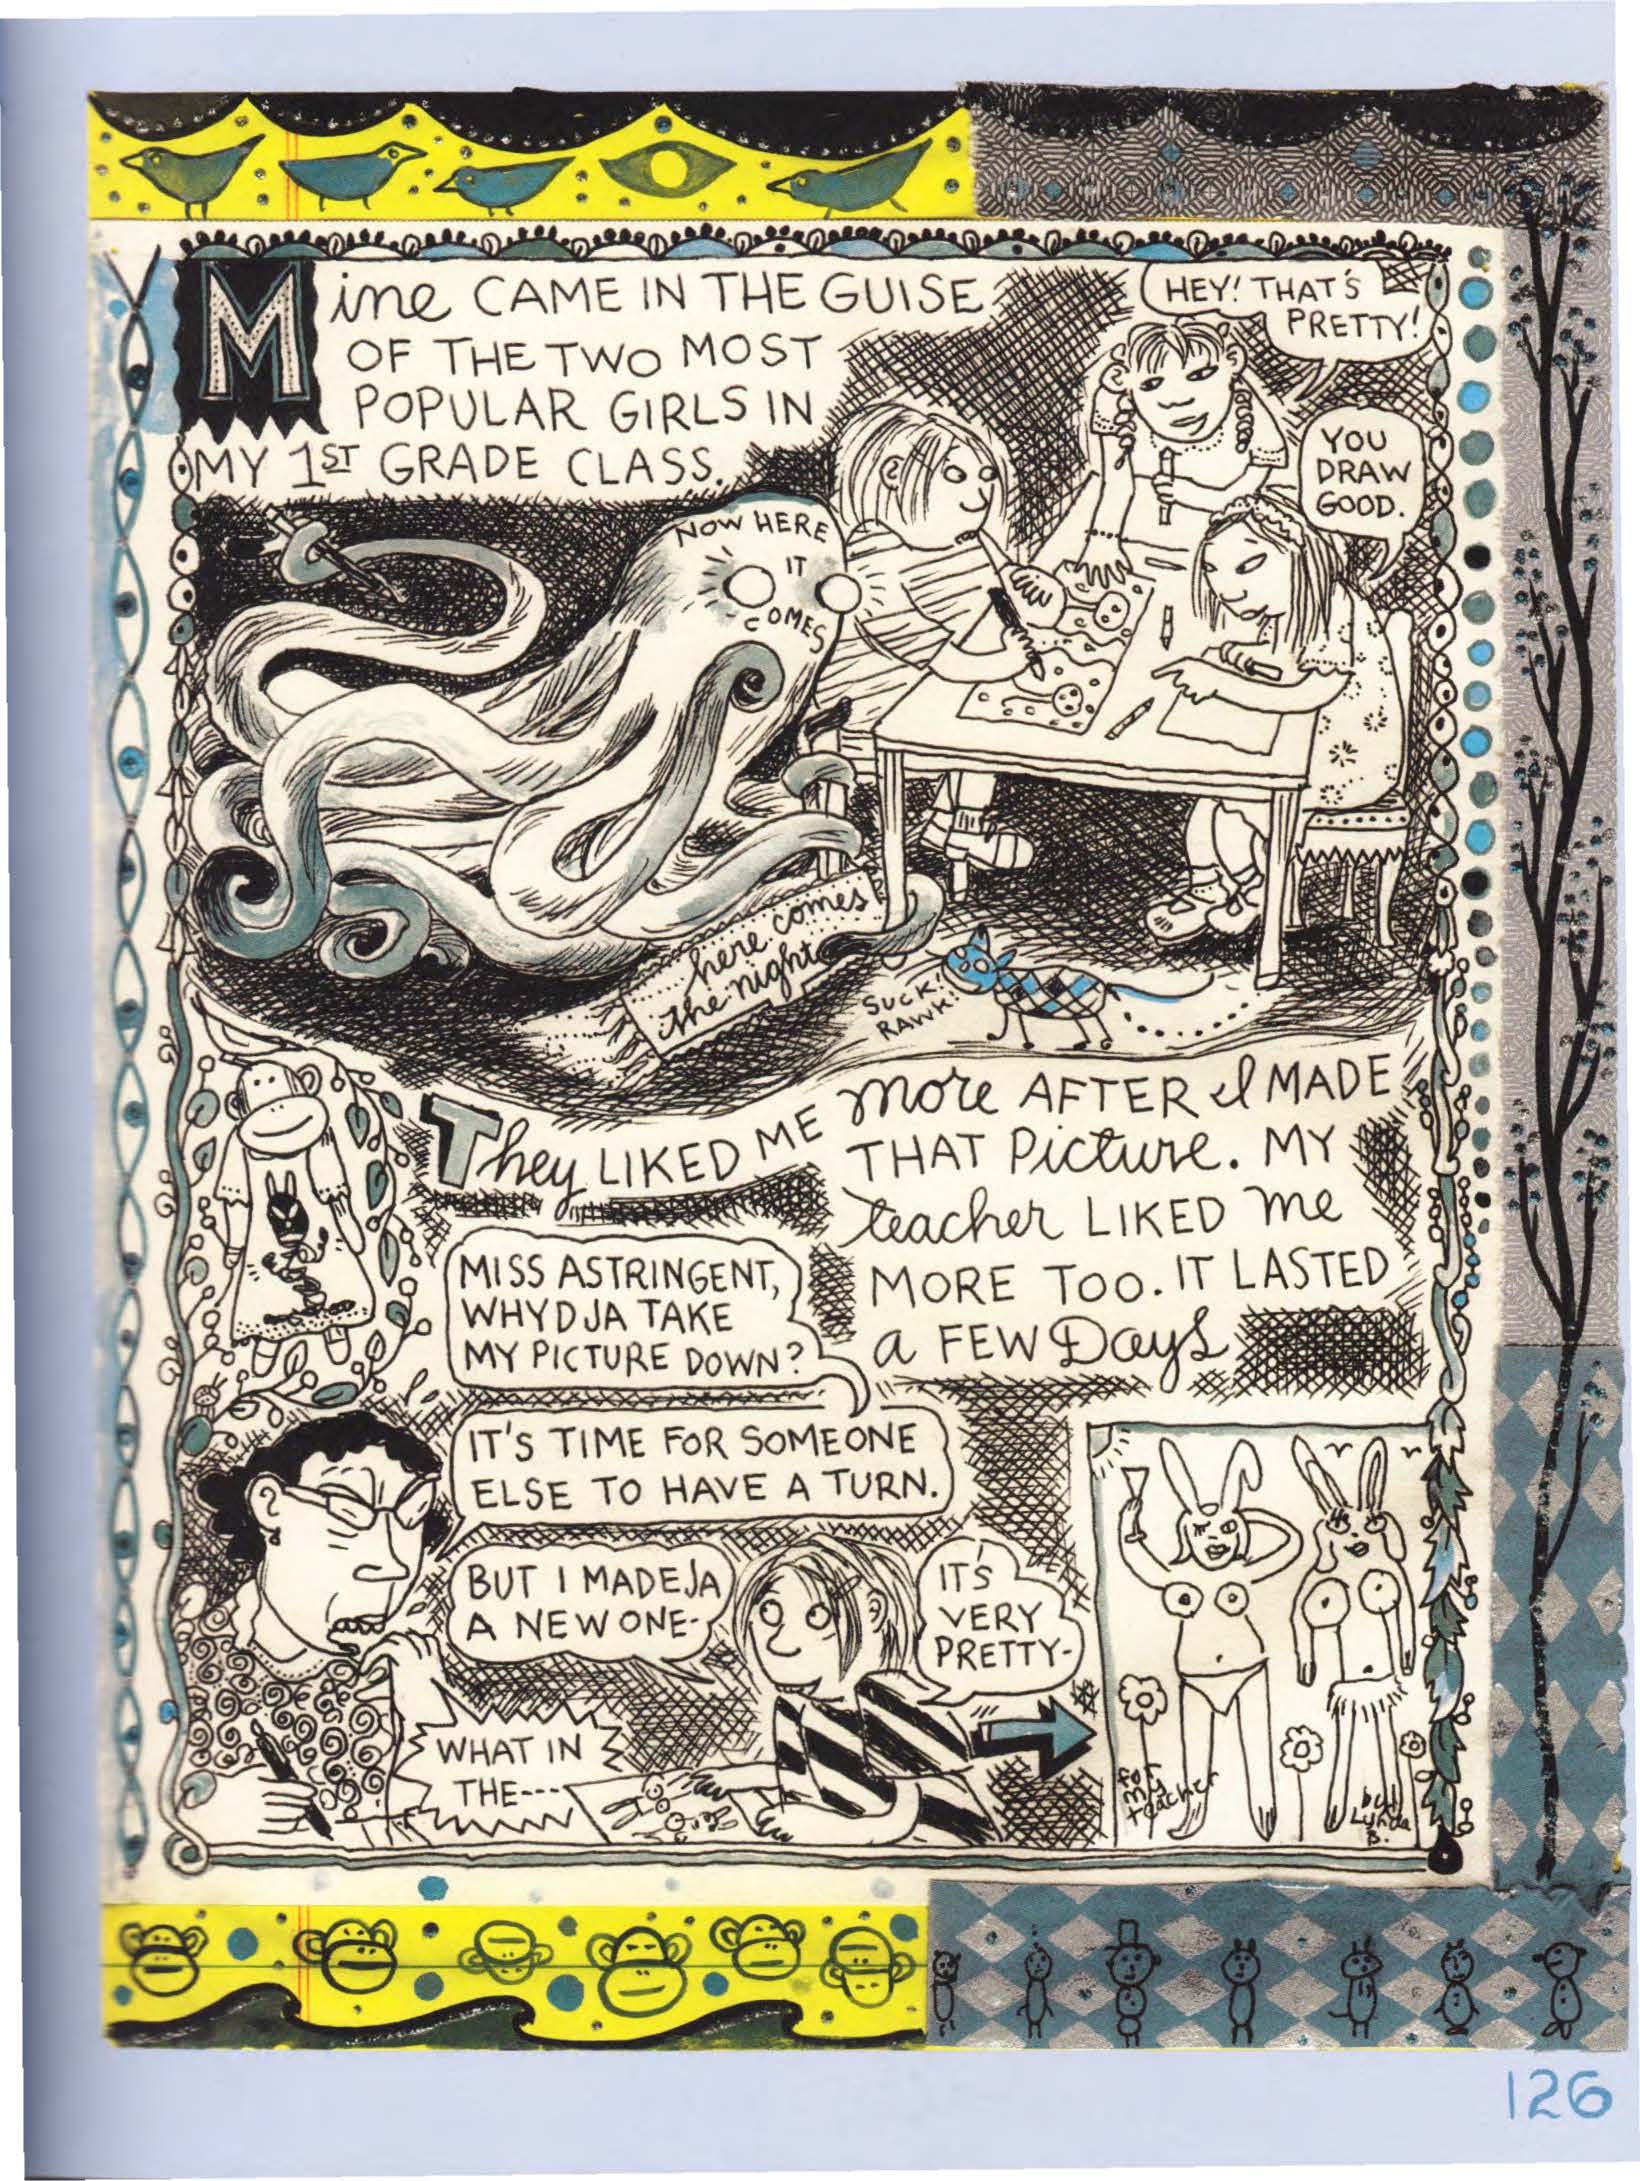 Mine CAME IN THE GUISE
OF THE TWO MOST
POPULAR GIRLS IN
MY 1ST GRADE CLASS.
HEY! THAT'S
PRETTY!
YOU
DRAW
GOOD.
NOW HERE
IT
COMES
here comes
the night
SUCK!
RAWK!
They LIKED ME more AFTER I MADE
THAT Picture. MY
teacher LIKED me
MORE TOO. IT LASTED
a FEW Days
MISS ASTRINGENT,
WHYDJA TAKE
MY PICTURE DOWN?
IT'S TIME FOR SOMEONE
ELSE TO HAVE A TURN.
BUT I MADEJA
A NEW ONE-
IT'S
VERY
PRETTY-
WHAT IN
THE----
for
my
teacher
by
Lynda
B.
126